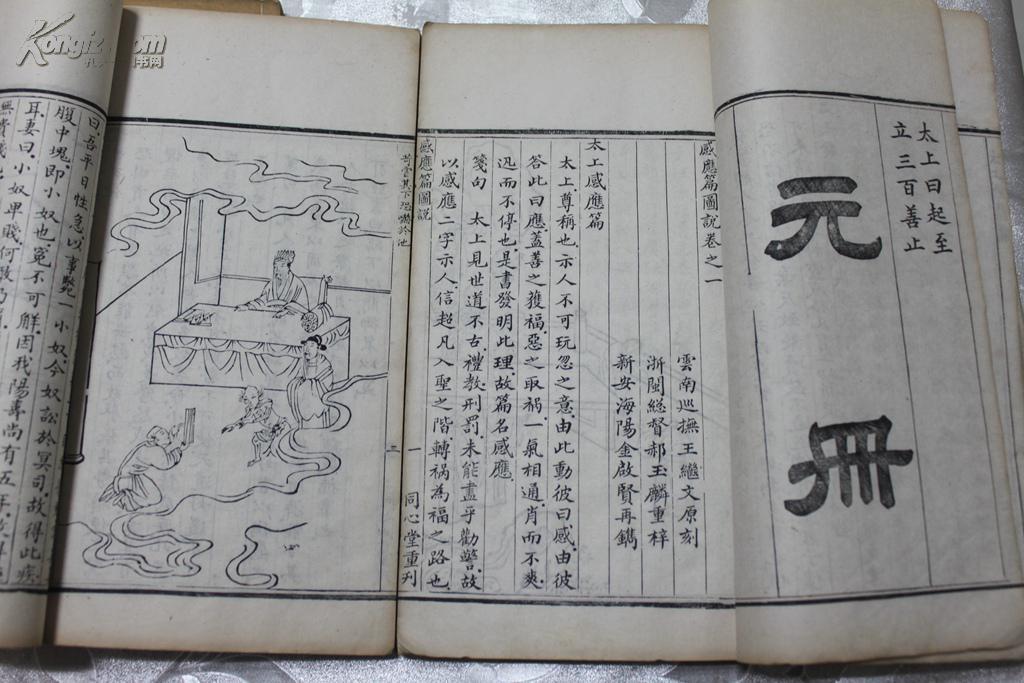 太上曰起至
立三百善止
元冊
感應篇圖說卷之一
雲南巡撫王繼文原刻
浙閩總督郝玉麟重梓
新安海陽金啟賢再鐫
太上感應篇
太上尊稱也.示人不可玩忽之意.由此動彼曰感.由彼
答此曰應.蓋善之獲福.惡之取禍.一氣相通.肖而不爽.
迅而不停也.是書發明此理.故篇名感應.
箋句 太上見世道不古.禮教刑罰.未能盡乎勸警.故
以感應二字示人.信超凡入聖之階.轉禍為福之路也.
感應篇圖說 一 同心堂重刋
二
曰.吾平日性急.以事斃一小奴.今奴訟於冥司.故得此疾.
腹中塊.即小奴也.冤不可解.因我陽壽尚有五年.
耳.妻曰.小奴卑賤.何敢
Kongfz.com